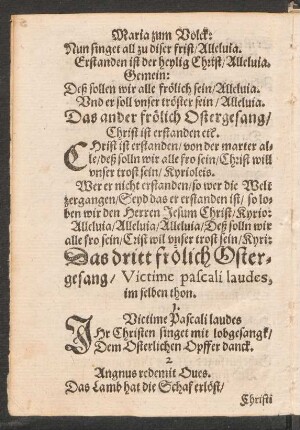 Maria zum Volck:
Nun singet all zu diser frist/Alleluia.
Erstanden ist der heylig Christ/Alleluia.
Gemein:
Deß sollen wir alle frölich sein/Alleluia.
Vnd er soll vnser tröster sein/Alleluia.
Das ander frölich Ostergesang/
Christ ist erstanden etc.
CHrist ist erstanden/von der marter al-
le/deß solln wir alle fro sein/Christ will
vnser trost sein/Kyrioleis.
Wer er nicht erstanden/so wer die Welt
zergangen/Seyd das er erstanden ist/so lo-
ben wir den Herren Jesum Christ/Kyrio:
Alleluia/Alleluia/Alleluia/Deß solln wir
alle fro sein/Crist wil vnser trost sein/Kyri:
Das dritt frölich Oster-
gesang/Victime pascali laudes,
im selben thon.
1.
Victime Pascali laudes
IHr Christen singet mit lobgesangk/
Dem Osterlichen Opffer danck.
2
Angnus redemit Oues.
Das Lamb hat die Schaf erlöst/
Christi